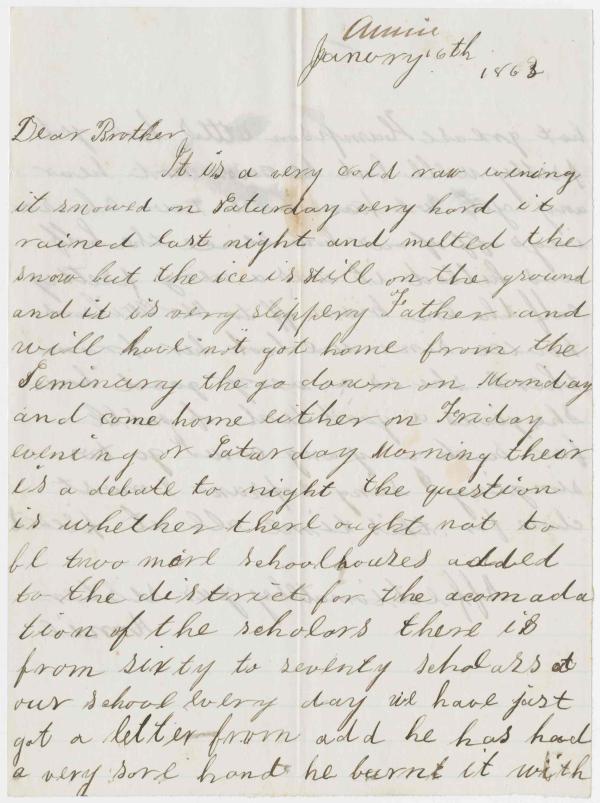 Annie
Janury 16th
1863
Dear Brother
It is a very cold raw evening
it snowed on Saturday very hard it
rained last night and melted the
snow but the ice is still on the ground
and it is very slippery Father and
will have not got home from the
Seminary the go down on Monday
and come home either on Friday
evening or Saturday Morning their
is a debate to night the question
is whether there ought not to
be two more schoolhouses added
to the district for the acomada
tion of the scholars there is
from sixty to seventy scholars at
our school every day we have just
got a letter from add he has had
a very sore hand he burnt it with